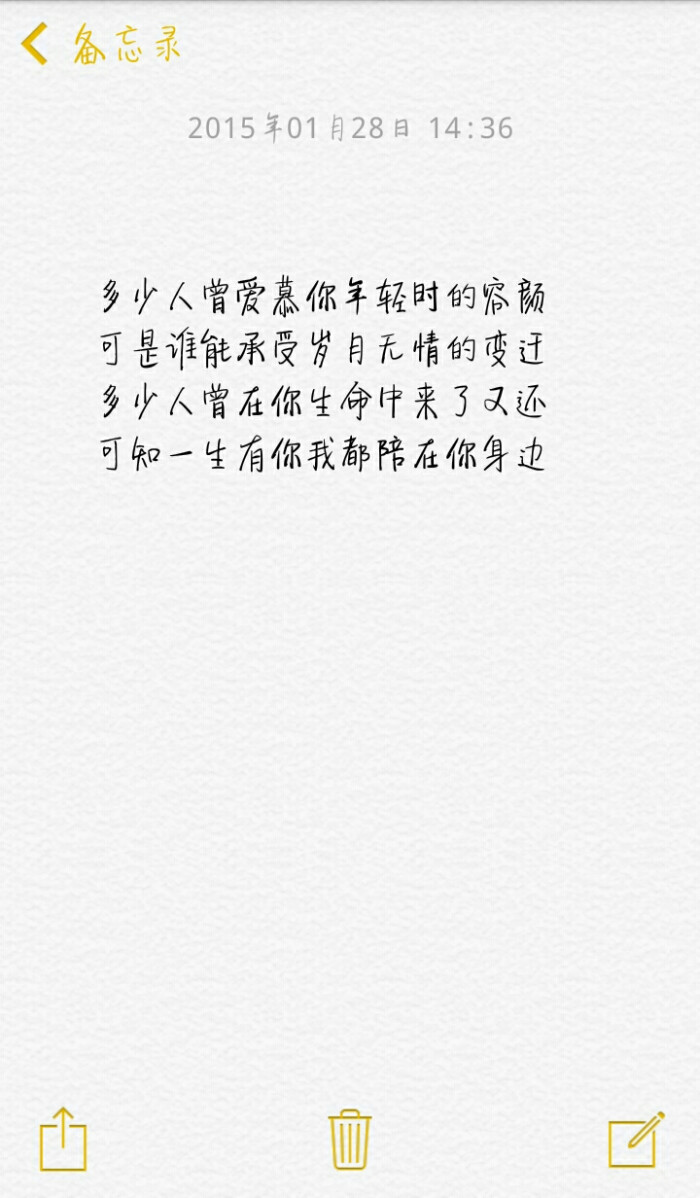 备忘录
2015年01月28日 14:36
多少人曾爱慕你年轻时的容颜
可是谁能承受岁月无情的变迁
多少人曾在你生命中来了又还
可知一生有你我都陪在你身边